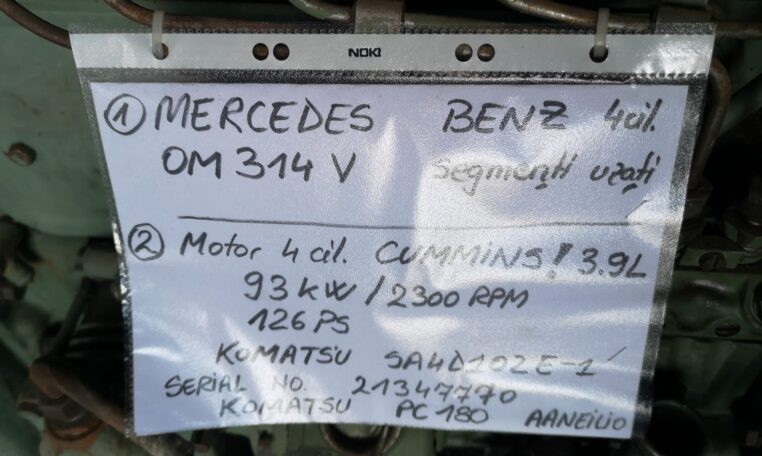 NOKI
① MERCEDES BENZ 4cil.
OM 314 V segmenți uzați
② Motor 4 cil. CUMMINS! 3.9L
93 kW / 2300 RPM
126 PS
KOMATSU SA4D102E-1
SERIAL NO. 21347770
KOMATSU PC 180 AANEILIO